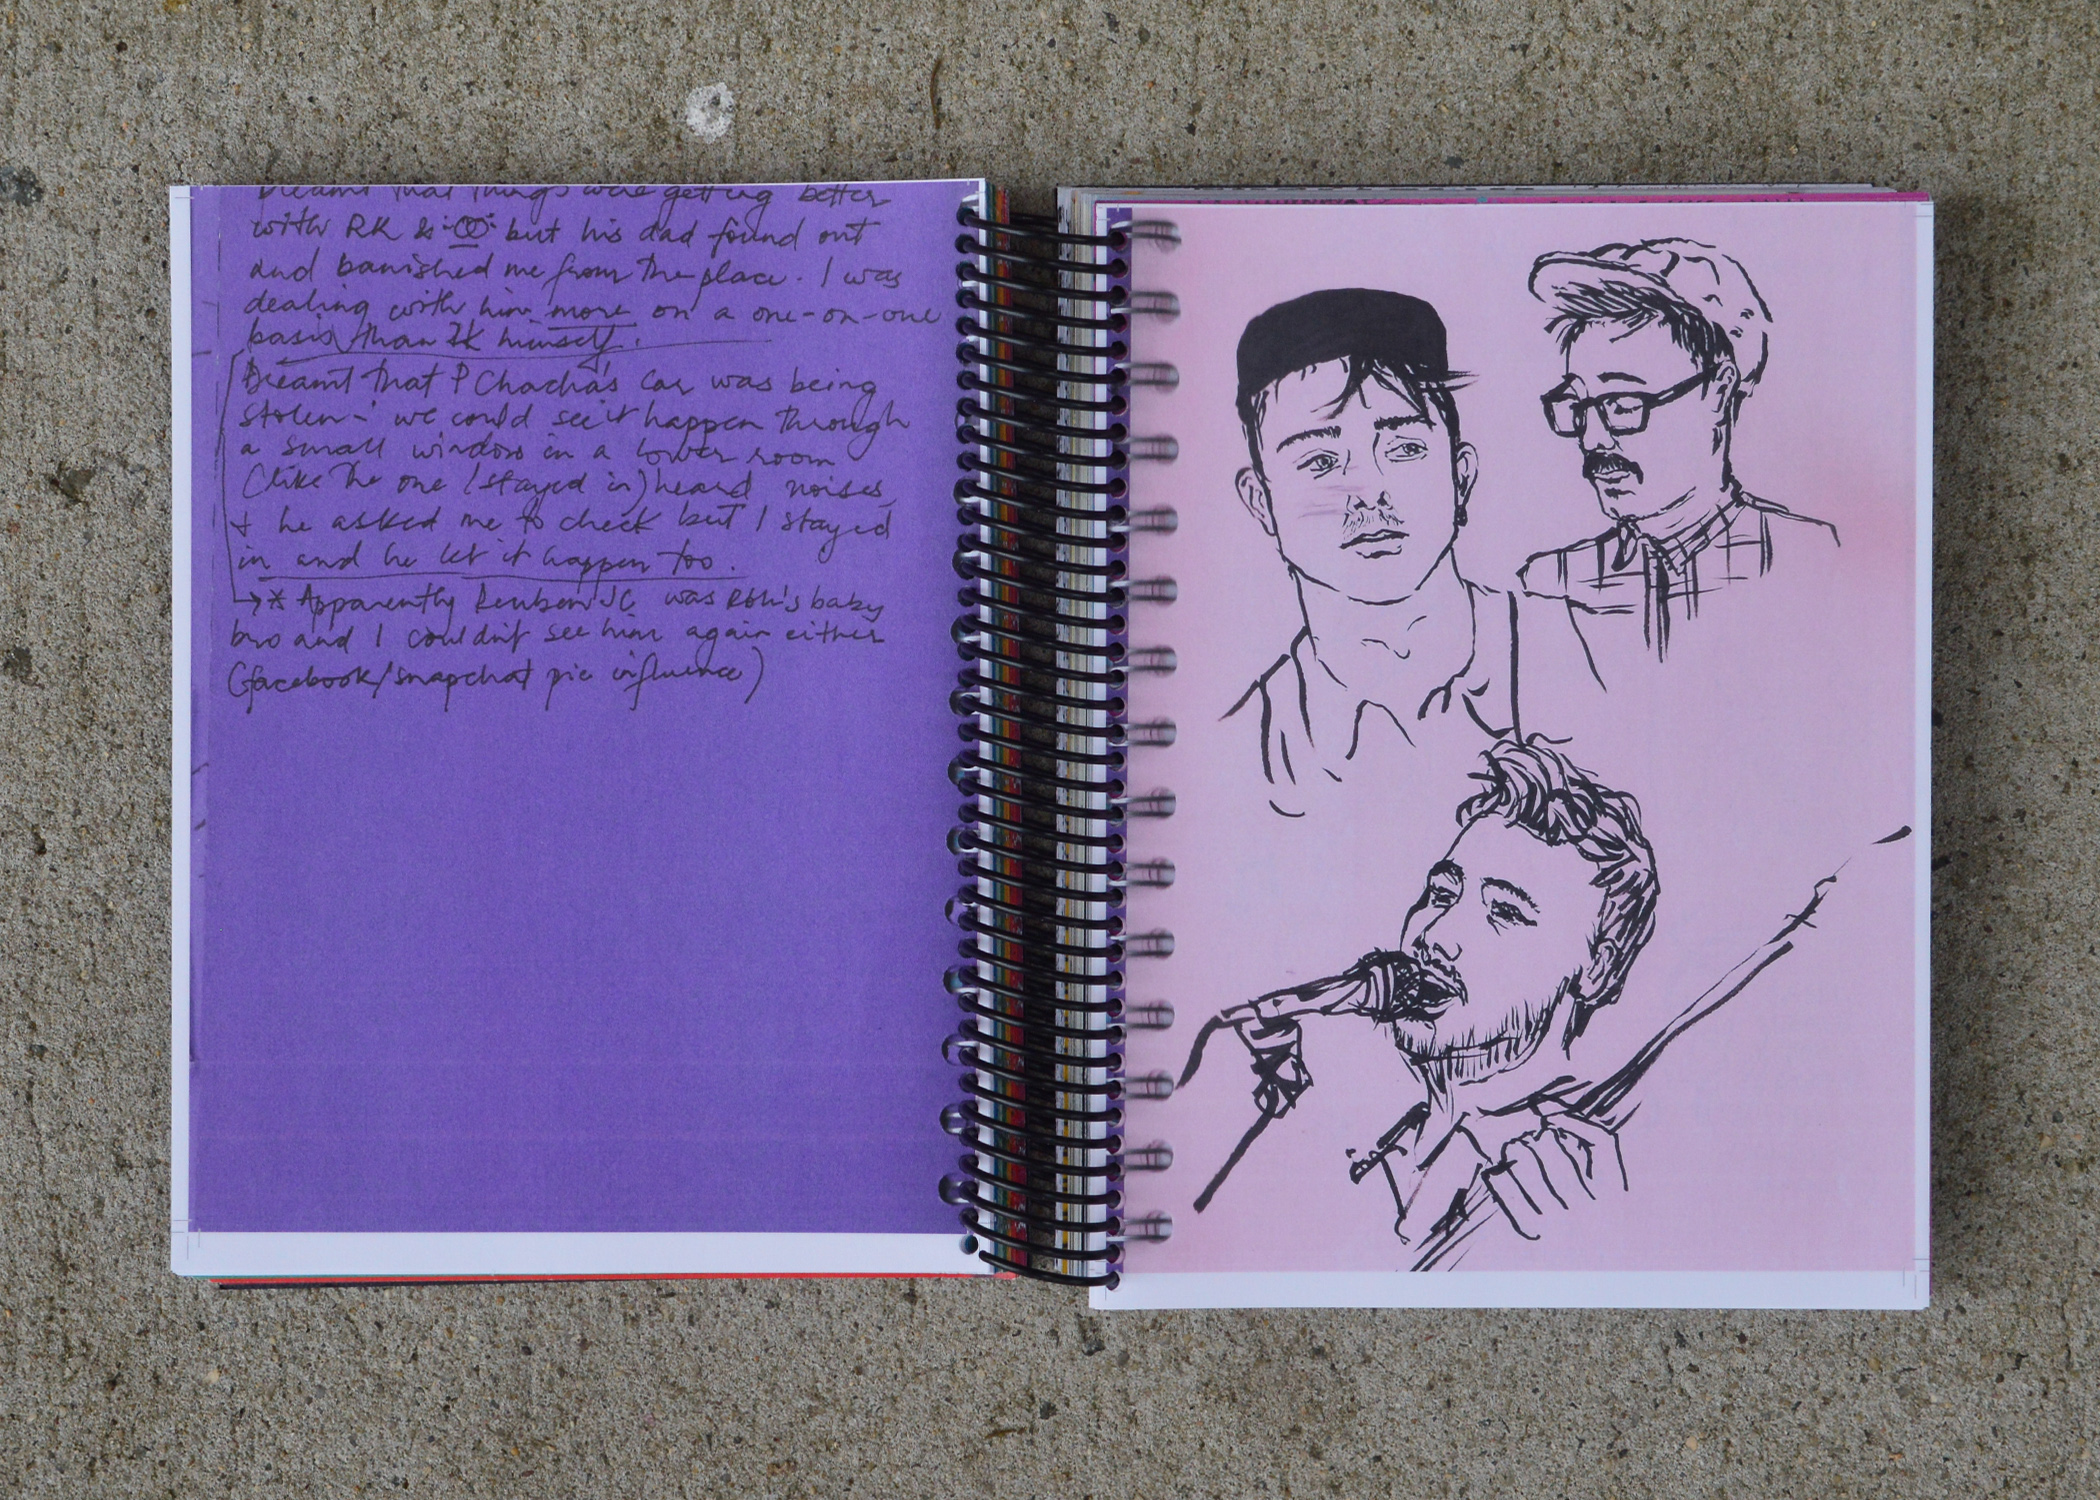 Dreamt that things were getting better
with RK & but his dad found out
and banished me from the place. I was
dealing with him more on a one-on-one
basis than himself.
Dreamt that P Chacha's car was being
stolen - we could see it happen through
a small window in a lower room
(like the one I stayed in) heard noises
+ he asked me to check but I stayed
in and he let it happen too.
→* Apparently Reuben JC was baby
bro and I couldn't see him again either
(facebook/snapchat pic influence)